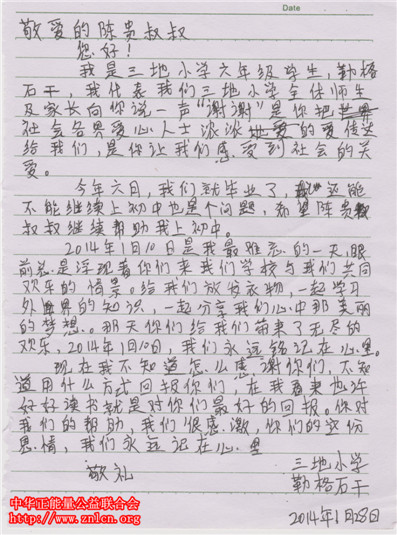 Date
敬爱的陈贵叔叔
您好!
我是三地小学六年级学生,勒格
石干,我代表我们三地小学全体师生
及家长向你说一声“谢谢”是你把
社会各界爱心人士 的爱传送
给我们,是你让我们感受到社会的关
爱。
今年六月,我们就毕业了,还能
不能继续上初中也是个问题,希望陈贵
叔叔继续帮助我上初中。
2014年1月10日是我最难忘的一天,眼
前总是浮现着你们来我们学校与我们共同
欢乐的情景。给我们放发衣物,一起学习
外世界的知识,一起分享我们心中那美丽
的梦想。那天你们给我们带来了无尽的
欢乐,2014年1月10日,我们永远铭记在心里。
现在我不知道怎么感谢你们,不知
道用什么方式回报你们,在我看来也许
好好读书就是对你们最好的回报。你对
我们的帮助,我们很感激,你们的这份
恩情,我们永远记在心里
敬礼
三地小学
勒格石干
2014年1月28日
中华正能量公益联合会
http://www.znlcn.org